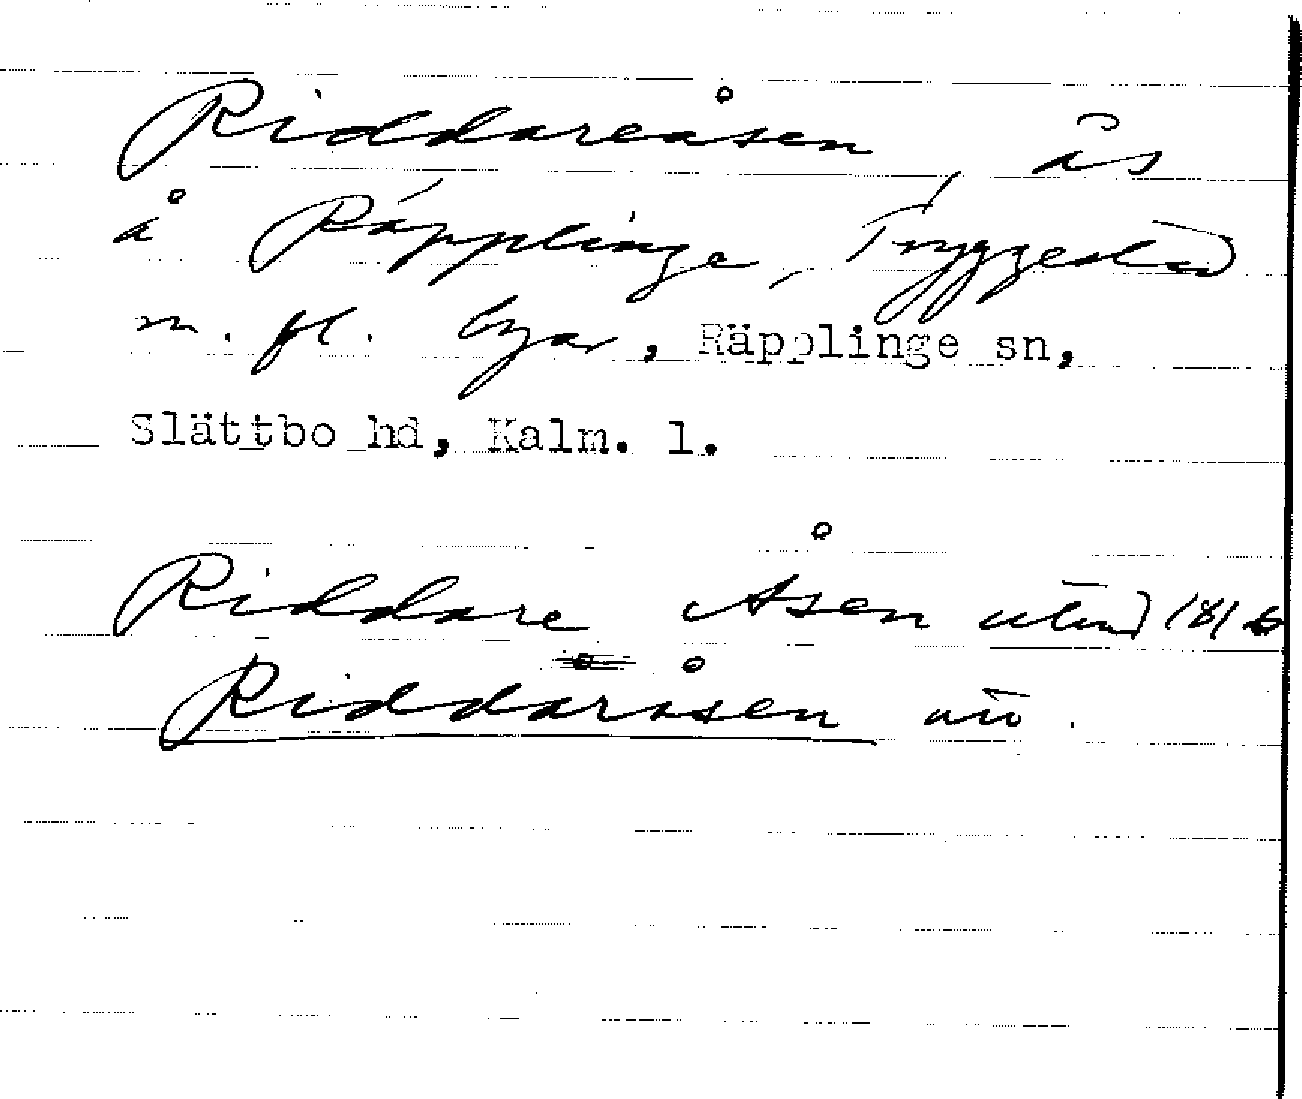 Riddareåsen, ås
å Räpplinge, Tryggestad
m. fl. byar, Räpplinge sn,
Slättbo hd, Kalm. l.
Riddare Åsen 1816
Riddaråsen